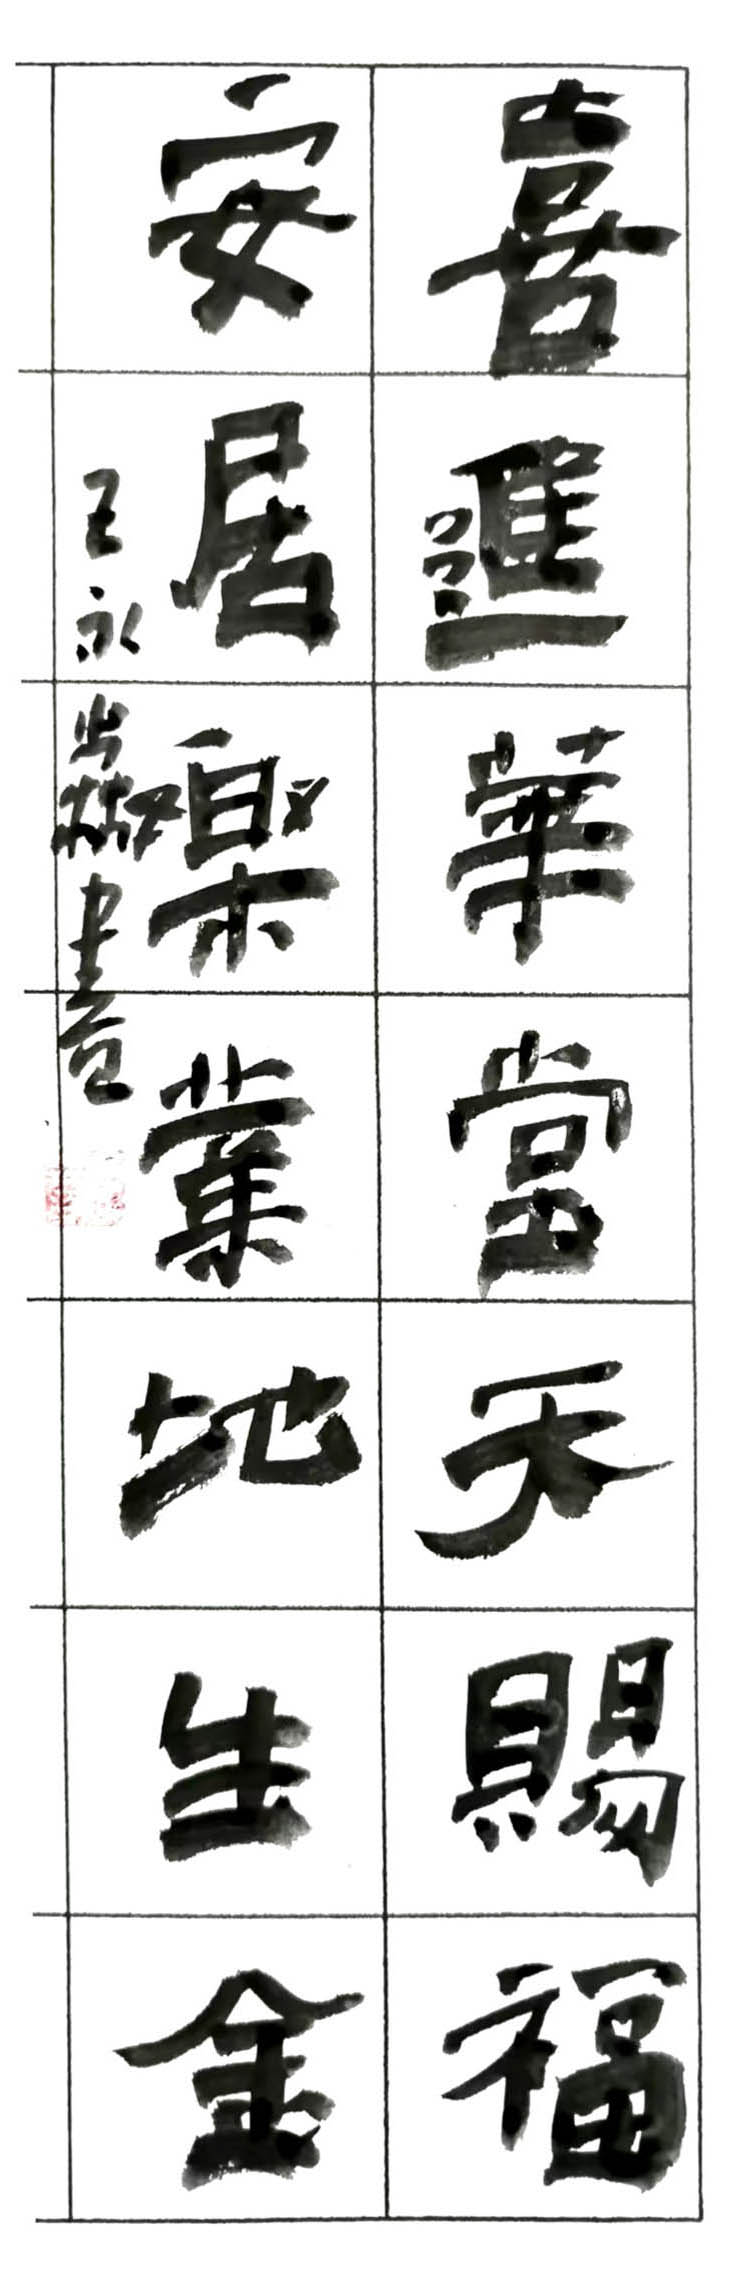 喜進華堂天賜福
安居樂業地生金
王永
書